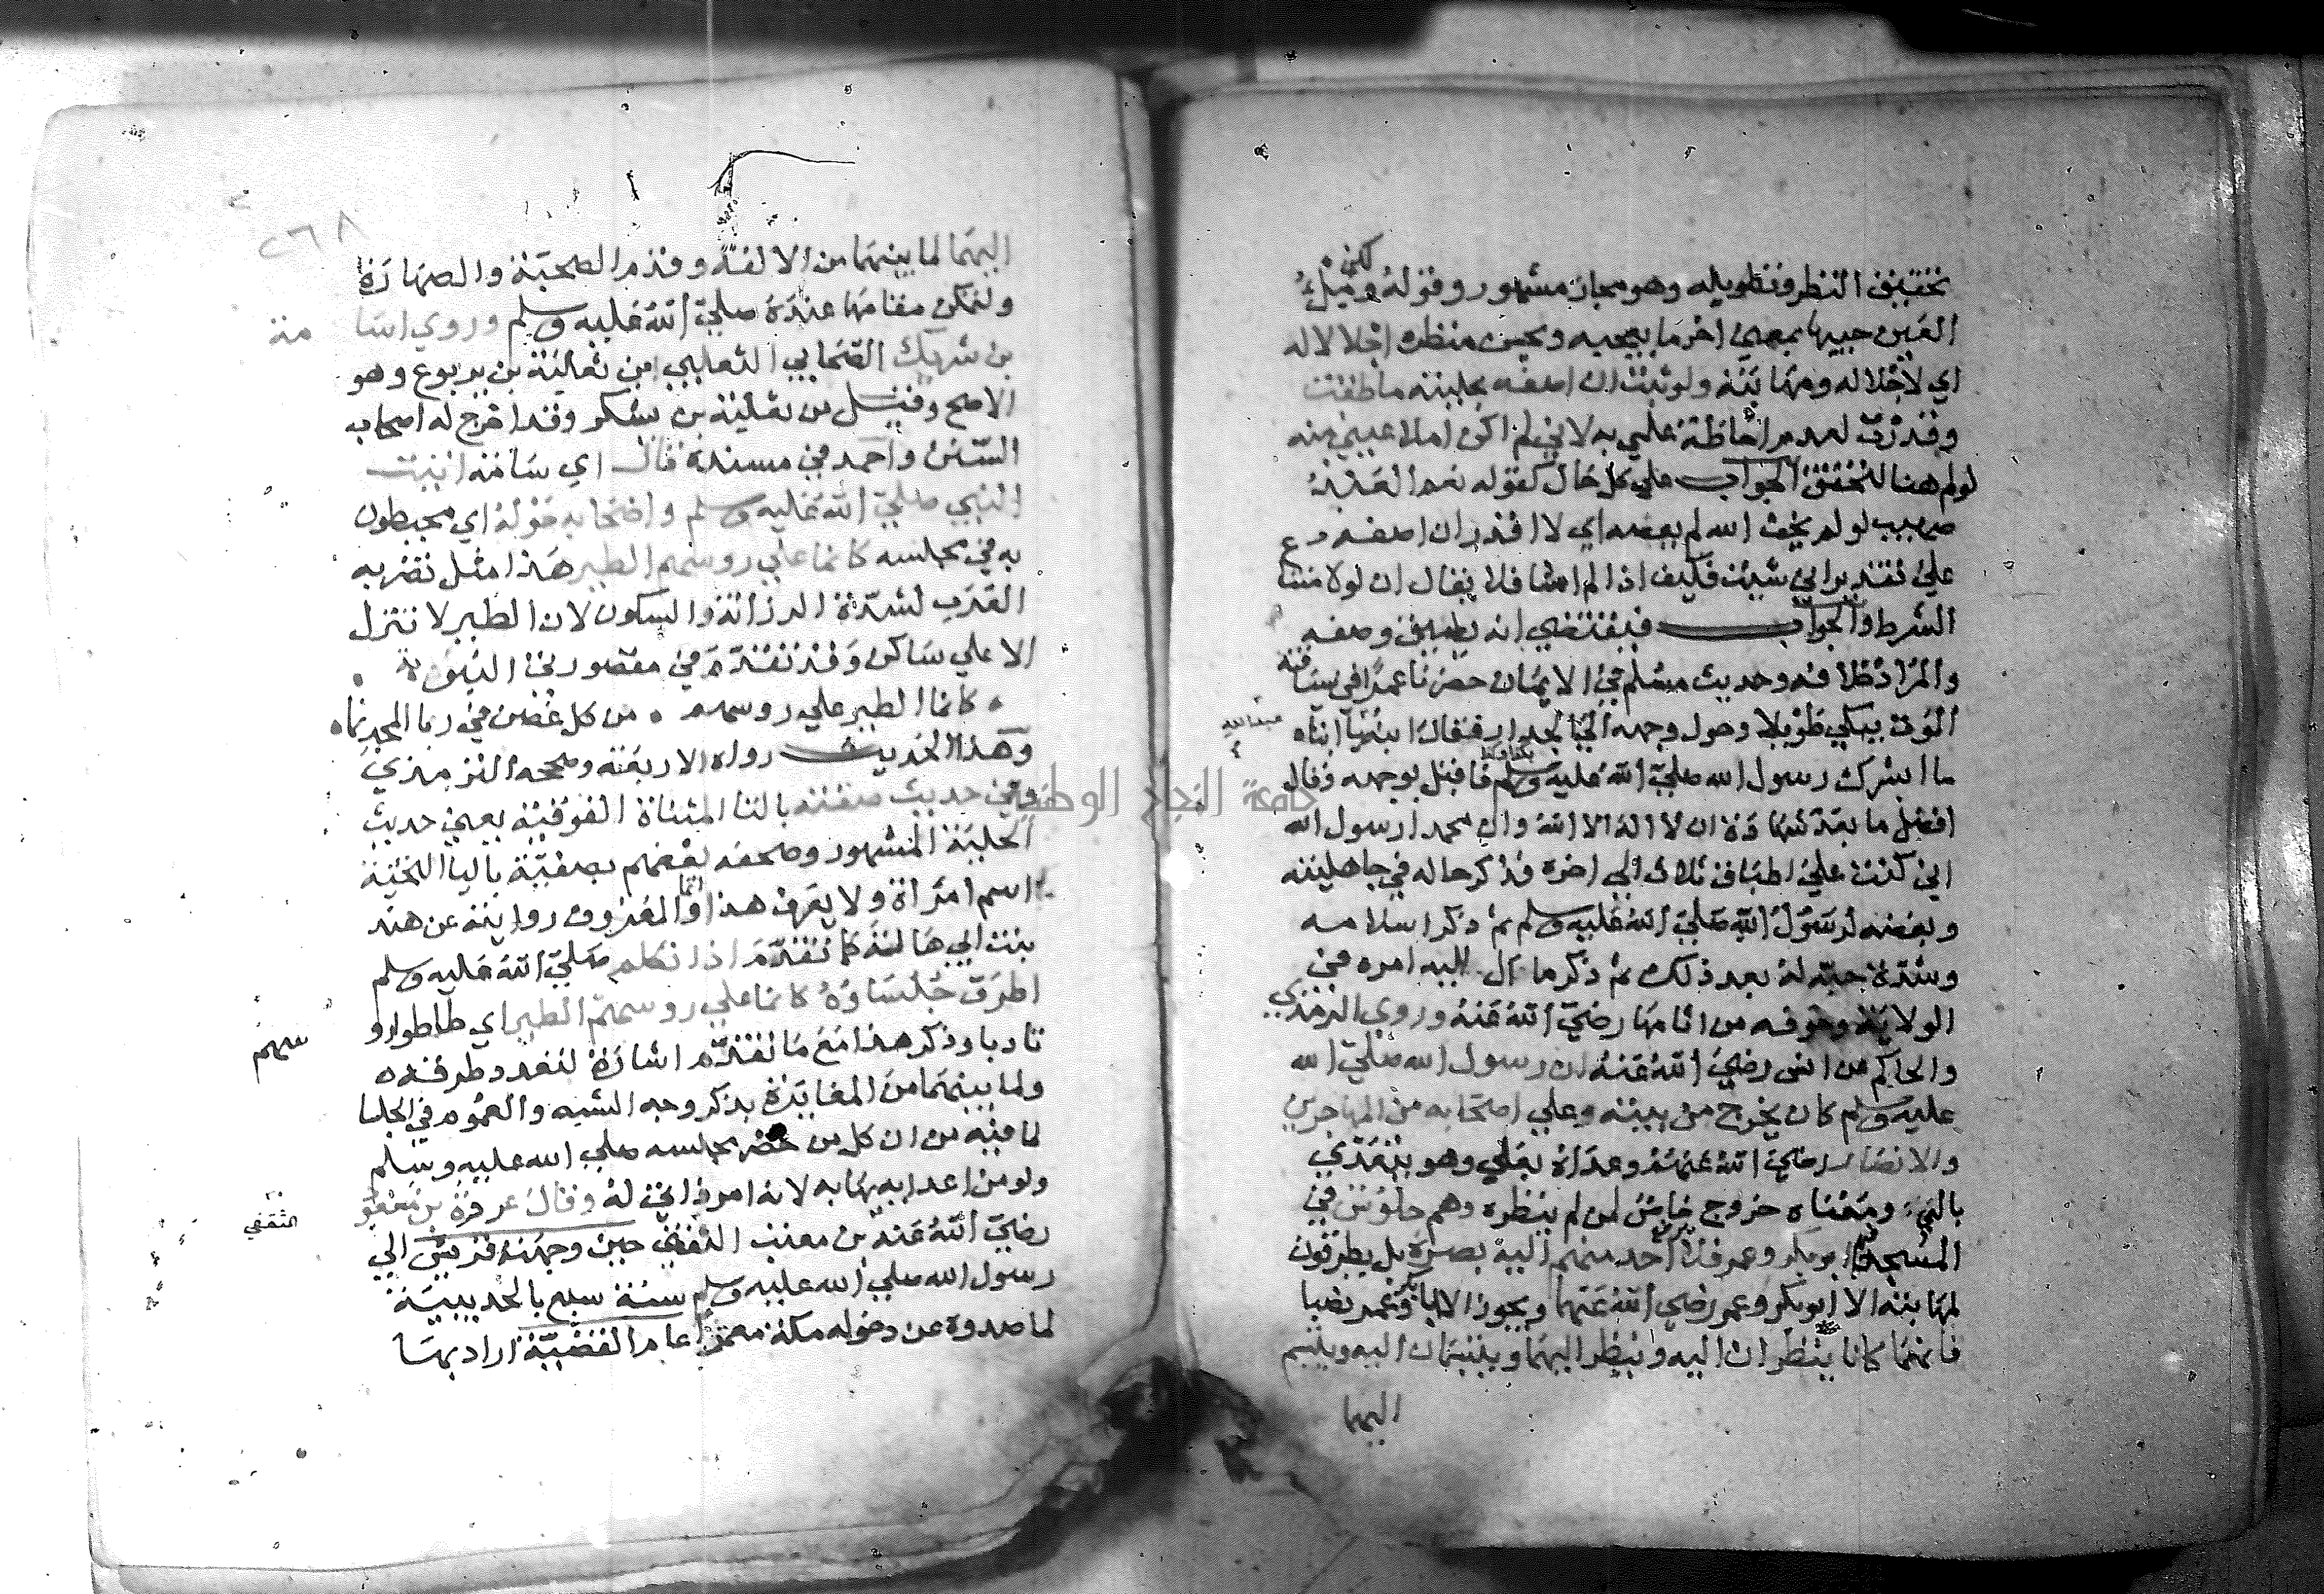 تحقيق النظر وتطويله وهو مجاز مشهور وقوله وملء لكن
العين حبيبها بمعنى اخر ما يعجبه ويحسن منظره اجلالا له
اي لاجلاله ومهابته ولو شئت ان اصفه بحليته ما اطقت
وقدرت لعدم احاطة علمي به لاني لم اكن املا عيني منه
لو لم هنا لتحقق الجواب على كل حال كقوله نعم العبد
صهيب لو لم يخف الله لم يعصه اي لا اقدر ان اصفه
على تقدير اني شئت فكيف اذا لم اشا فلا يقال ان لو لامتناع
الشرط والجواب فيقتضي انه يطيق وصفه
والمراد خلافه وحديث مسلم في الايمان حضرنا عمرا في سياقة
الموت يبكي طويلا وحول وجهه الى الجدار فقال ابنه يا ابتاه
عبد الله
ما ابشرك رسول الله صلى الله عليه وسلم بكذا وكذا فاقبل بوجهه وقال
افضل ما بعد شهادة ان لا اله الا الله وان محمدا رسول الله
اني كنت على اطباق ثلاث الى اخره فذكر حاله في جاهليته
وبغضه لرسول الله صلى الله عليه وسلم ثم ذكر اسلامه
وشدة حبه له بعد ذلك ثم ذكر ما آل اليه امره في
الولاية وخوفه من اثامها رضي الله عنه وروى الترمذي
والحاكم عن انس رضي الله عنه ان رسول الله صلى الله
عليه وسلم كان يخرج من بيته وعلى اصحابه من المهاجرين
والانصار رضي الله عنهم وعداه بعلى وهو يتعدى
بالى ومعناه خروج خاص لمن لم ينظره وهم جلوس في
المسجد فيهم ابو بكر وعمر فلا يرفع احد منهم اليه بصره بل يطرقون
لمهابته الا ابو بكر وعمر رضي الله عنهما ويجوز الا ابا بكر وعمر نصبا
فانهما كانا ينظران اليه وينظر اليهما ويتبسمان اليه ويتبسم
اليهما
٢٦٨
اليهما لما بينهما من الالفة وقدم الصحبة والصهارة
ولتمكن مقامهما عنده صلى الله عليه وسلم وروى اسامة
بن شريك الصحابي الثعلبي من ثعلبة بن يربوع وهو
الاصح وقيل من ثعلبة بن يشكر وقد اخرج له اصحاب
السنن واحمد في مسنده قال اي سامة اتيت
النبي صلى الله عليه وسلم واصحابه حوله اي محيطون
به في مجلسه كانما على روسهم الطير هذا مثل تضربه
العرب لشدة الرزانة والسكون لان الطير لا تنزل
الا على ساكن وقد تقدم في مقصورتنا النبوية
كانما الطير على روسهم من كل غصن في ربا المجد نماه
وهذا الحديث رواه الاربعة وصححه الترمذي
وفي حديث صفته بالتا المثناة الفوقية يعني حديث
الحلية المشهور وصحفه بعضهم بصفية باليا التحتية
اسم امراة ولا يعرف هذا وانما المعروف روايته عن هند
بنت ابي هالة كما تقدم اذا تكلم صلى الله عليه وسلم
اطرق جلساؤه كانما على روسهم الطير اي طاطوا رو
سهم
تادبا وذكر هذا مع ما تقدم اشارة لتعدد طرقه
ولما بينهما من المغايرة بذكر وجه الشبه والعموم في الجلسا
لما فيه من ان كل من حضر بمجلسه صلى الله عليه وسلم
ولو من اعدايه يهابه لانه امر ذاتي له وقال عروة بن مسعود
الثقفي
رضي الله عنه بن معتب الثقفي حين وجهته قريش الى
رسول الله صلى الله عليه وسلم سنة سبع بالحديبية
لما صدوه عن دخوله مكة معتمرا عام القضية اراد بها
جامعة النجاح الوطنية